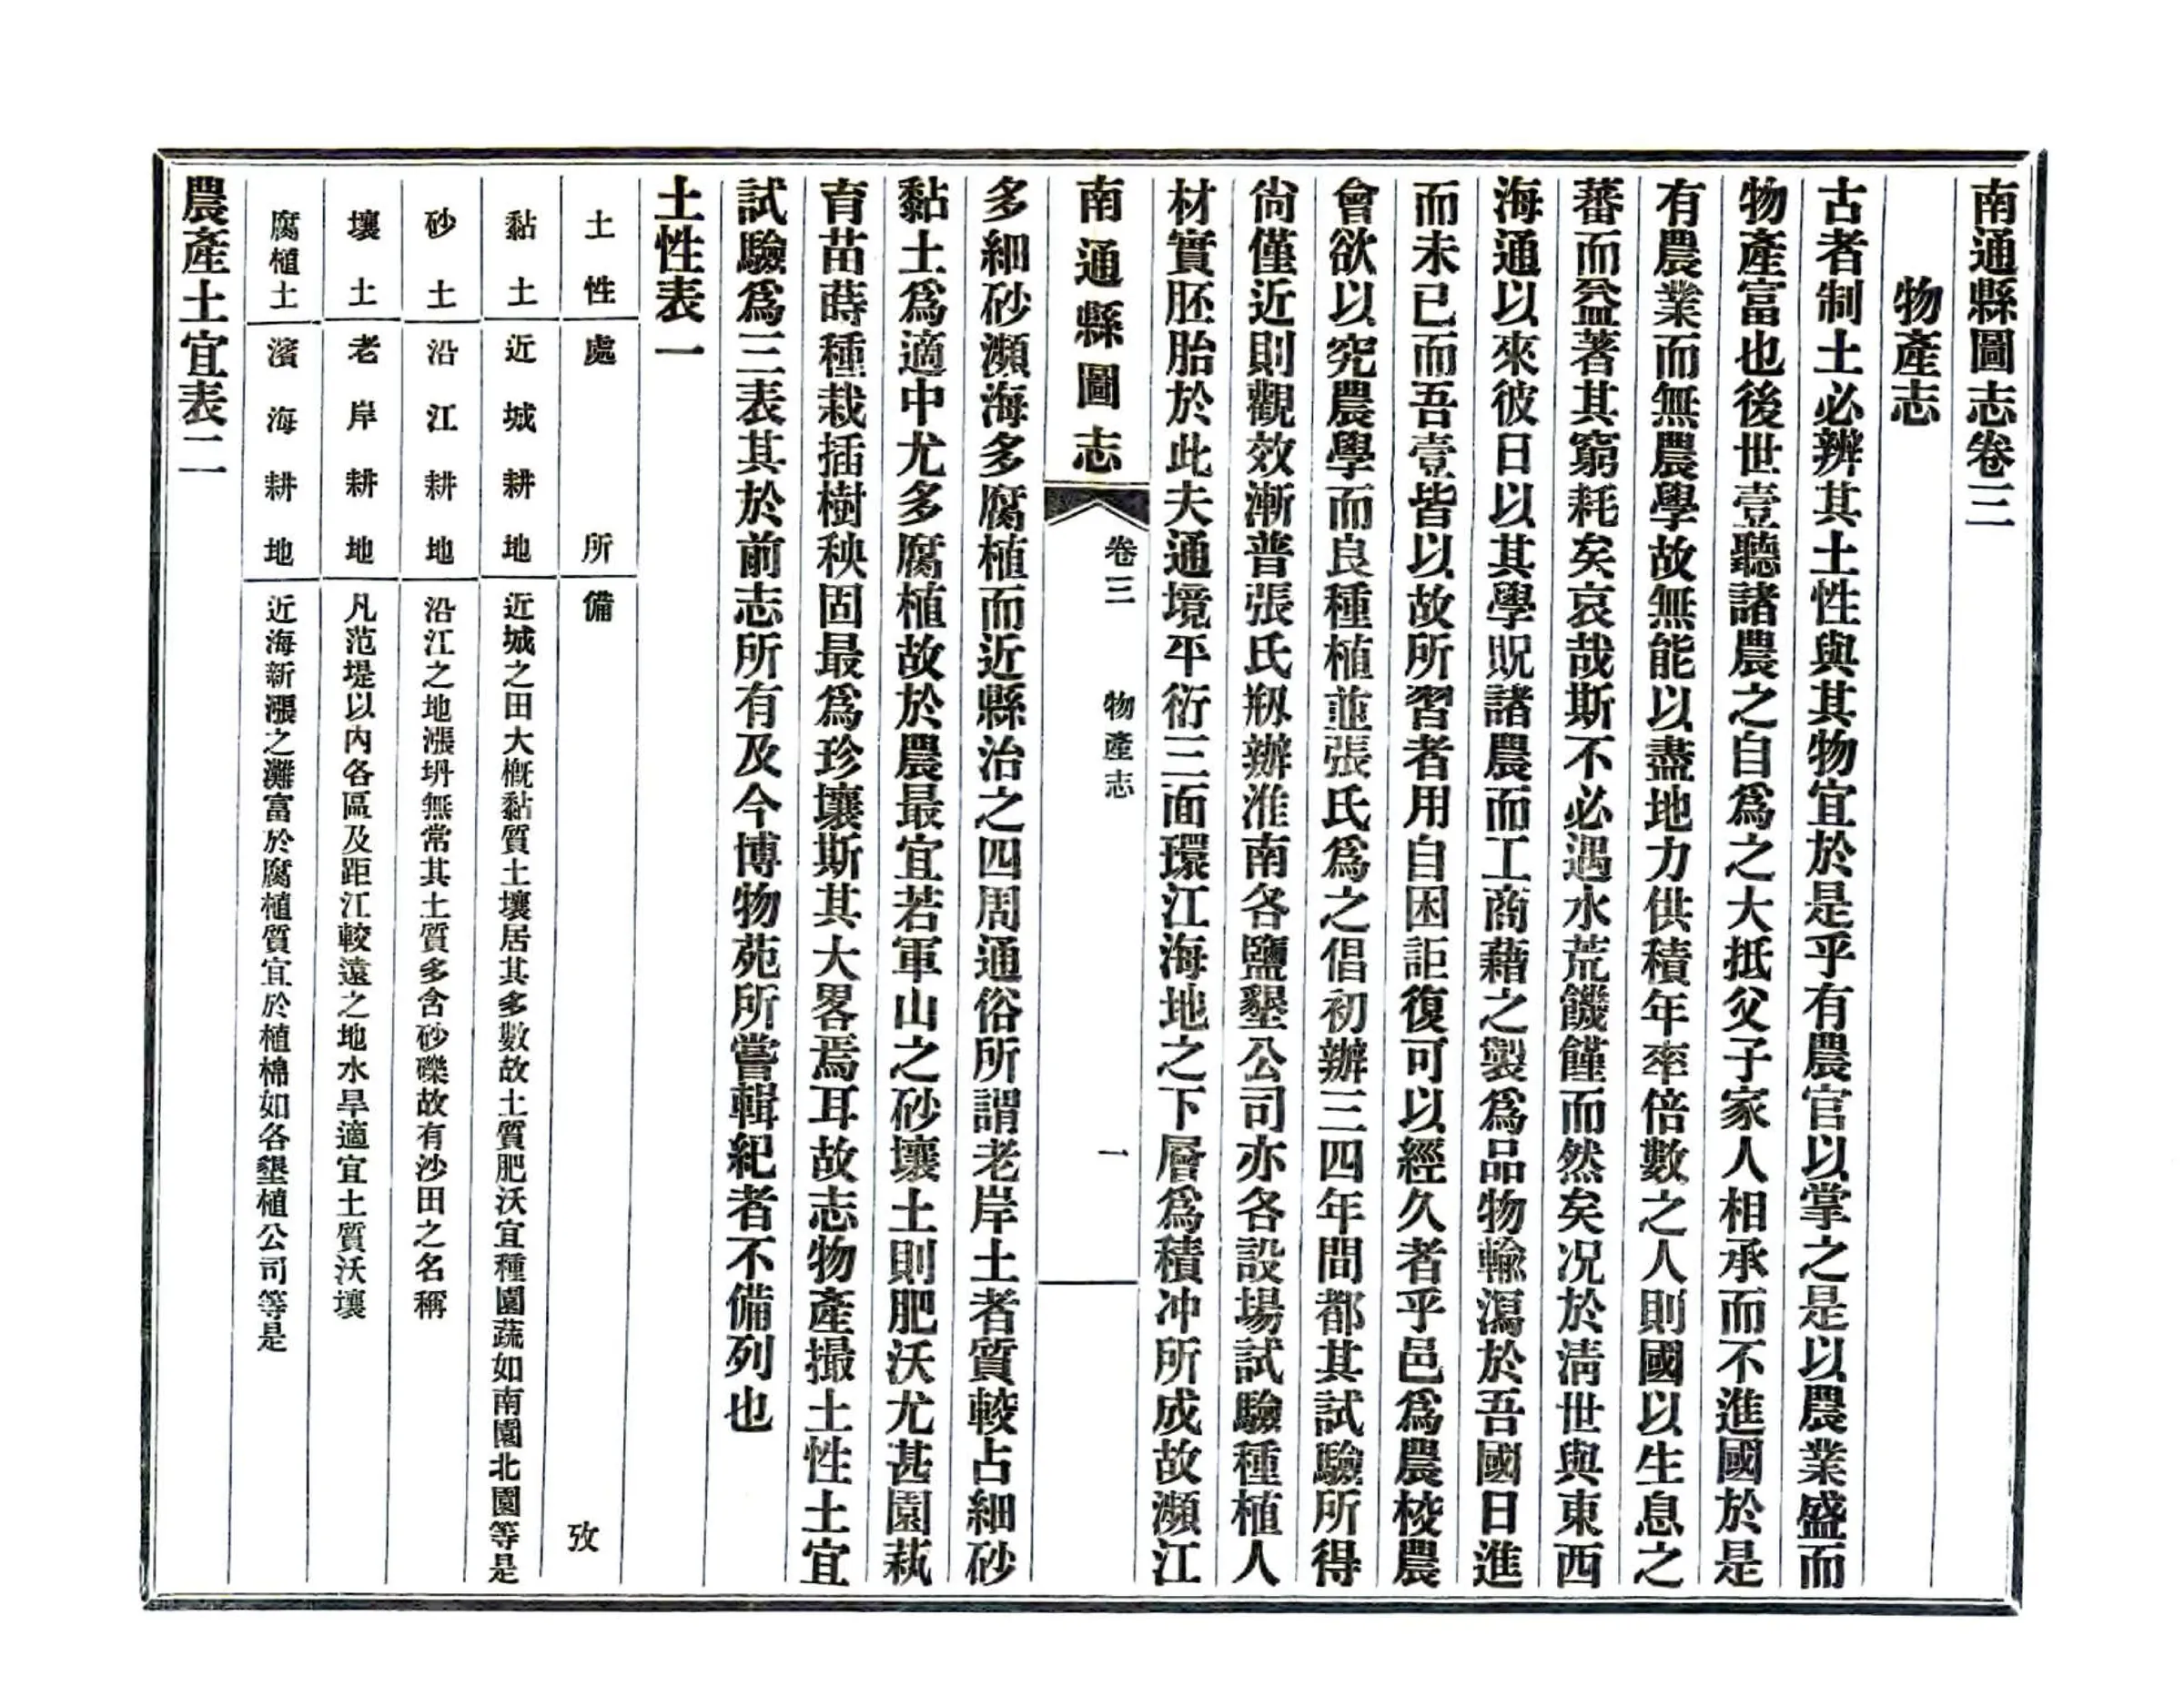 南通縣圖志卷三
物產志
古者制土必辨其土性與其物宜於是乎有農官以掌之是以農業盛而
物產富也後世壹聽諸農之自爲之大抵父子家人相承而不進國於是
有農業而無農學故無能以盡地力供積年率倍數之人則國以生息之
蕃而益著其窮耗矣哀哉斯不必遇水荒饑饉而然矣況於淸世與東西
海通以來彼日以其學貺諸農而工商藉之製爲品物輸瀉於吾國日進
而未已而吾壹皆以故所習者用自困詎復可以經久者乎邑爲農校農
會欲以究農學而良種植並張氏爲之倡初辦三四年間都其試驗所得
尙僅近則觀效漸普張氏剏辦淮南各鹽墾公司亦各設場試驗種植人
材實胚胎於此夫通境平衍三面環江海地之下層爲積冲所成故瀕江
南通縣圖志
卷三 物產志 一
多細砂瀕海多腐植而近縣治之四周通俗所謂老岸土者質較占細砂
黏土爲適中尤多腐植故於農最宜若軍山之砂壤土則肥沃尤甚園蓺
育苗蒔種栽插樹秧固最爲珍壤斯其大畧焉耳故志物產撮土性土宜
試驗爲三表其於前志所有及今博物苑所嘗輯紀者不備列也
土性表一
土性 處所 備攷
黏土 近城耕地 近城之田大槪黏質土壤居其多數故土質肥沃宜種園蔬如南園北園等是
砂土 沿江耕地 沿江之地漲坍無常其土質多含砂礫故有沙田之名稱
壤土 老岸耕地 凡范堤以內各區及距江較遠之地水旱適宜土質沃壤
腐植土 濱海耕地 近海新漲之灘富於腐植質宜於植棉如各墾植公司等是
農產土宜表二